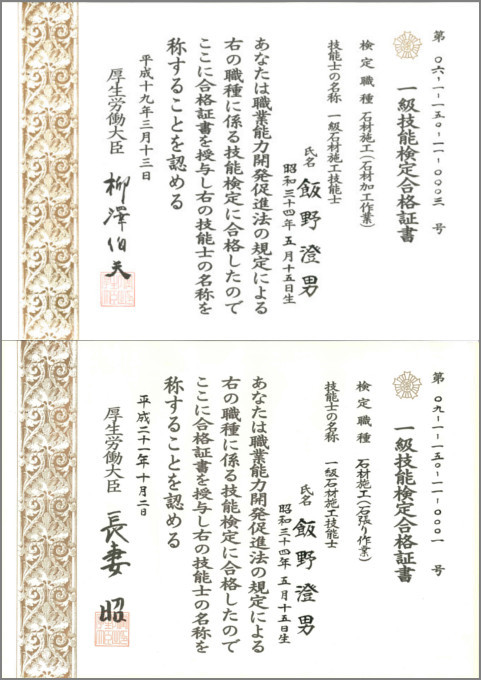 第 〇六-一-一五〇-一一-〇〇〇三 号
一級技能検定合格証書
検定職種 石材施工(石材加工作業)
技能士の名称 一級石材施工技能士
氏名 飯野澄男
昭和三十四年五月十五日生
あなたは職業能力開発促進法の規定による
右の職種に係る技能検定に合格したので
ここに合格証書を授与し右の技能士の名称を
称することを認める
平成十九年三月十三日
厚生労働大臣 柳澤伯夫
第 〇九-一-一五〇-一一-〇〇〇一 号
一級技能検定合格証書
検定職種 石材施工(石張り作業)
技能士の名称 一級石材施工技能士
氏名 飯野澄男
昭和三十四年五月十五日生
あなたは職業能力開発促進法の規定による
右の職種に係る技能検定に合格したので
ここに合格証書を授与し右の技能士の名称を
称することを認める
平成二十一年十月二日
厚生労働大臣 長妻昭